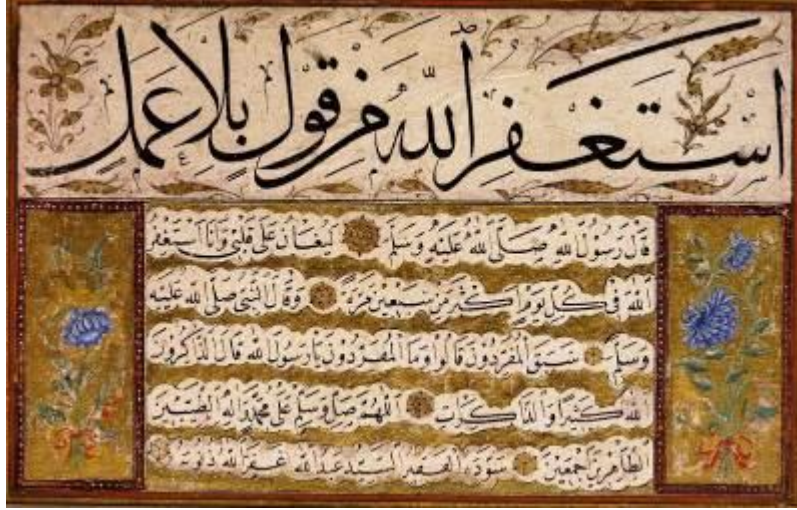 استغفر الله من قول بلا عمل
قال رسول الله صلى الله عليه وسلم ليغان على قلبي وأنا استغفر
الله في كل يوم اكثر من سبعين مرة وقال النبي صلى الله عليه
وسلم سبق المفردون قالوا وما المفردون يا رسول الله قال الذاكرون
الله كثيرا والذاكرات اللهم صل وسلم على محمد وآله الطيبين
الطاهرين اجمعين سوده الفقير السيد عبد الله غفر الله ذنوبه